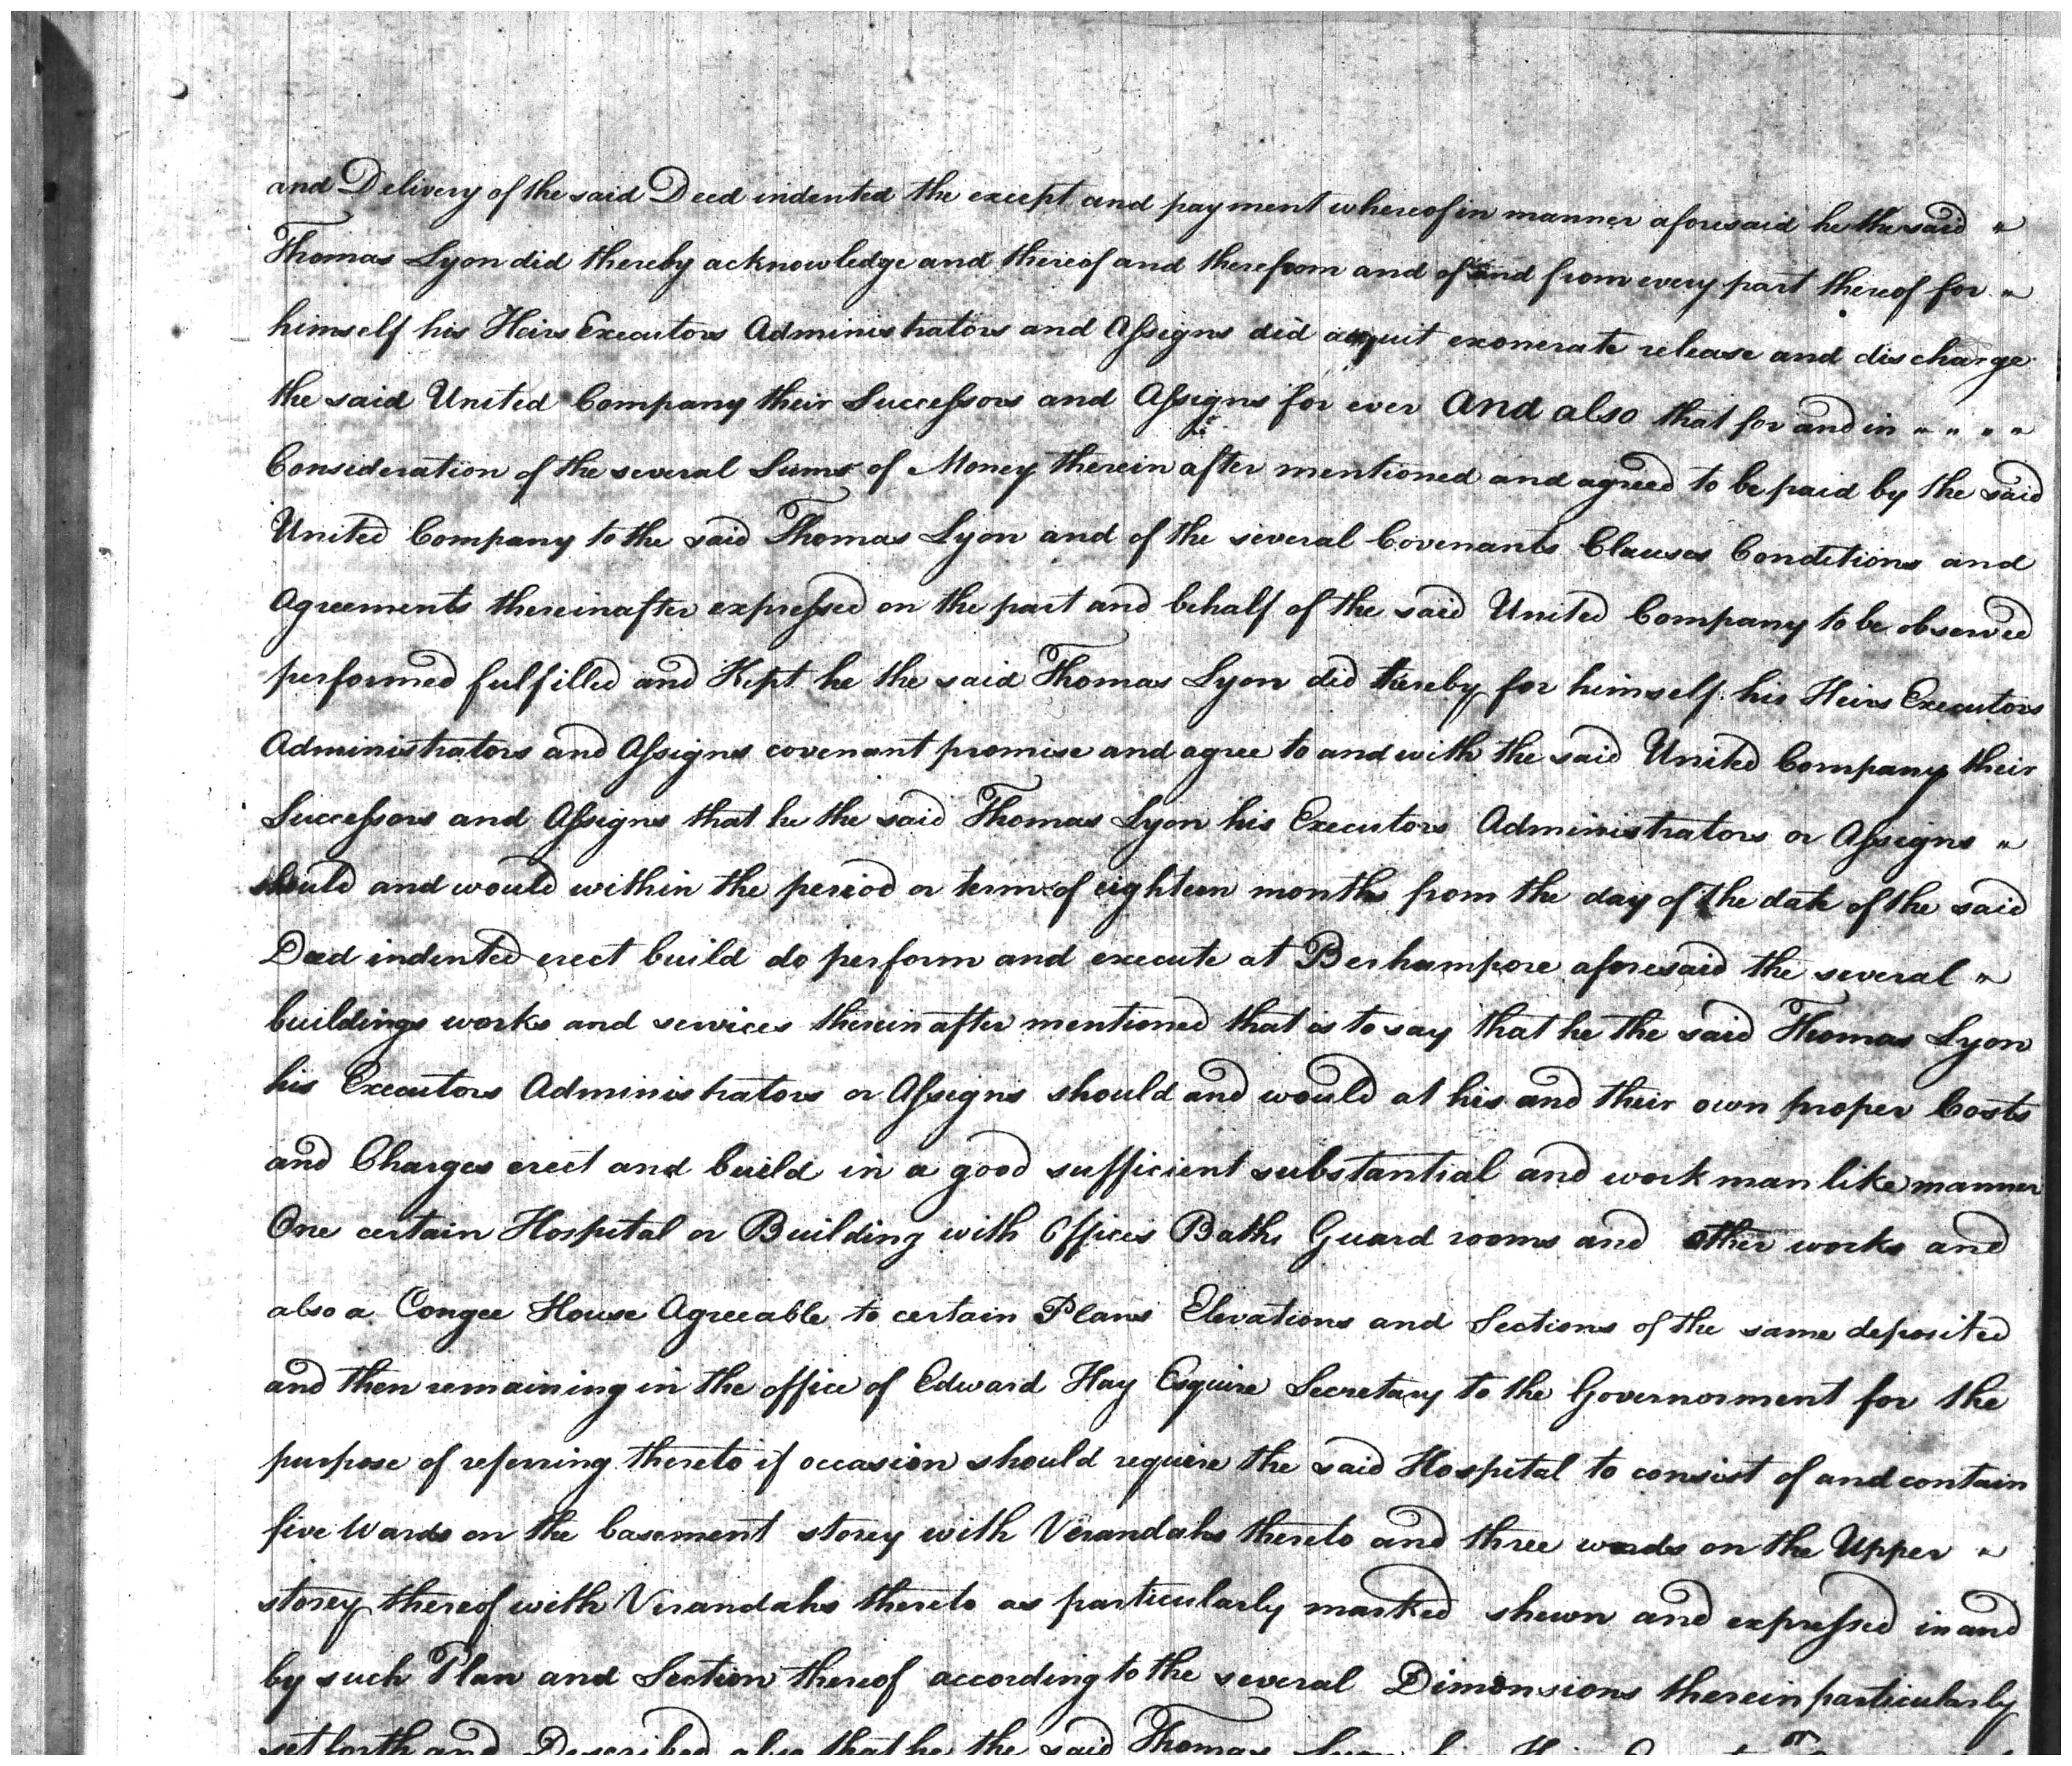 and Delivery of the said Deed indented the except and payment whereof in manner aforesaid he the said "
Thomas Lyon did thereby acknowledge and thereof and therefrom and of and from every part thereof for "
himself his Heirs Executors Administrators and Assigns did acquit exonerate release and discharge
the said United Company their Successors and Assigns for ever And also that for and in " " " "
Consideration of the several Sums of Money therein after mentioned and agreed to be paid by the said
United Company to the said Thomas Lyon and of the several Covenants Clauses Conditions and
Agreements thereinafter expressed on the part and behalf of the said United Company to be observed
performed fulfilled and Kept he the said Thomas Lyon did thereby for himself his Heirs Executors
Administrators and Assigns covenant promise and agree to and with the said United Company their
Successors and Assigns that he the said Thomas Lyon his Executors Administrators or Assigns "
should and would within the period or term of eighteen months from the day of the date of the said
Deed indented erect build do perform and execute at Berhampore aforesaid the several "
buildings works and services therein after mentioned that is to say that he the said Thomas Lyon
his Executors Administrators or Assigns should and would at his and their own proper Costs
and Charges erect and build in a good sufficient substantial and work man like manner
One certain Hospital or Building with Offices Baths Guard rooms and other works and
also a Congee House Agreeable to certain Plans Elevations and Sections of the same deposited
and then remaining in the office of Edward Hay Esquire Secretary to the Governorment for the
purpose of referring thereto if occasion should require the said Hospital to consist of and contain
five Wards on the basement storey with Verandahs thereto and three wards on the Upper "
storey thereof with Verandahs thereto as particularly marked shewn and expressed in and
by such Plan and Section thereof according to the several Dimensions therein particularly
set forth and Described also that he the said Thomas Lyon his